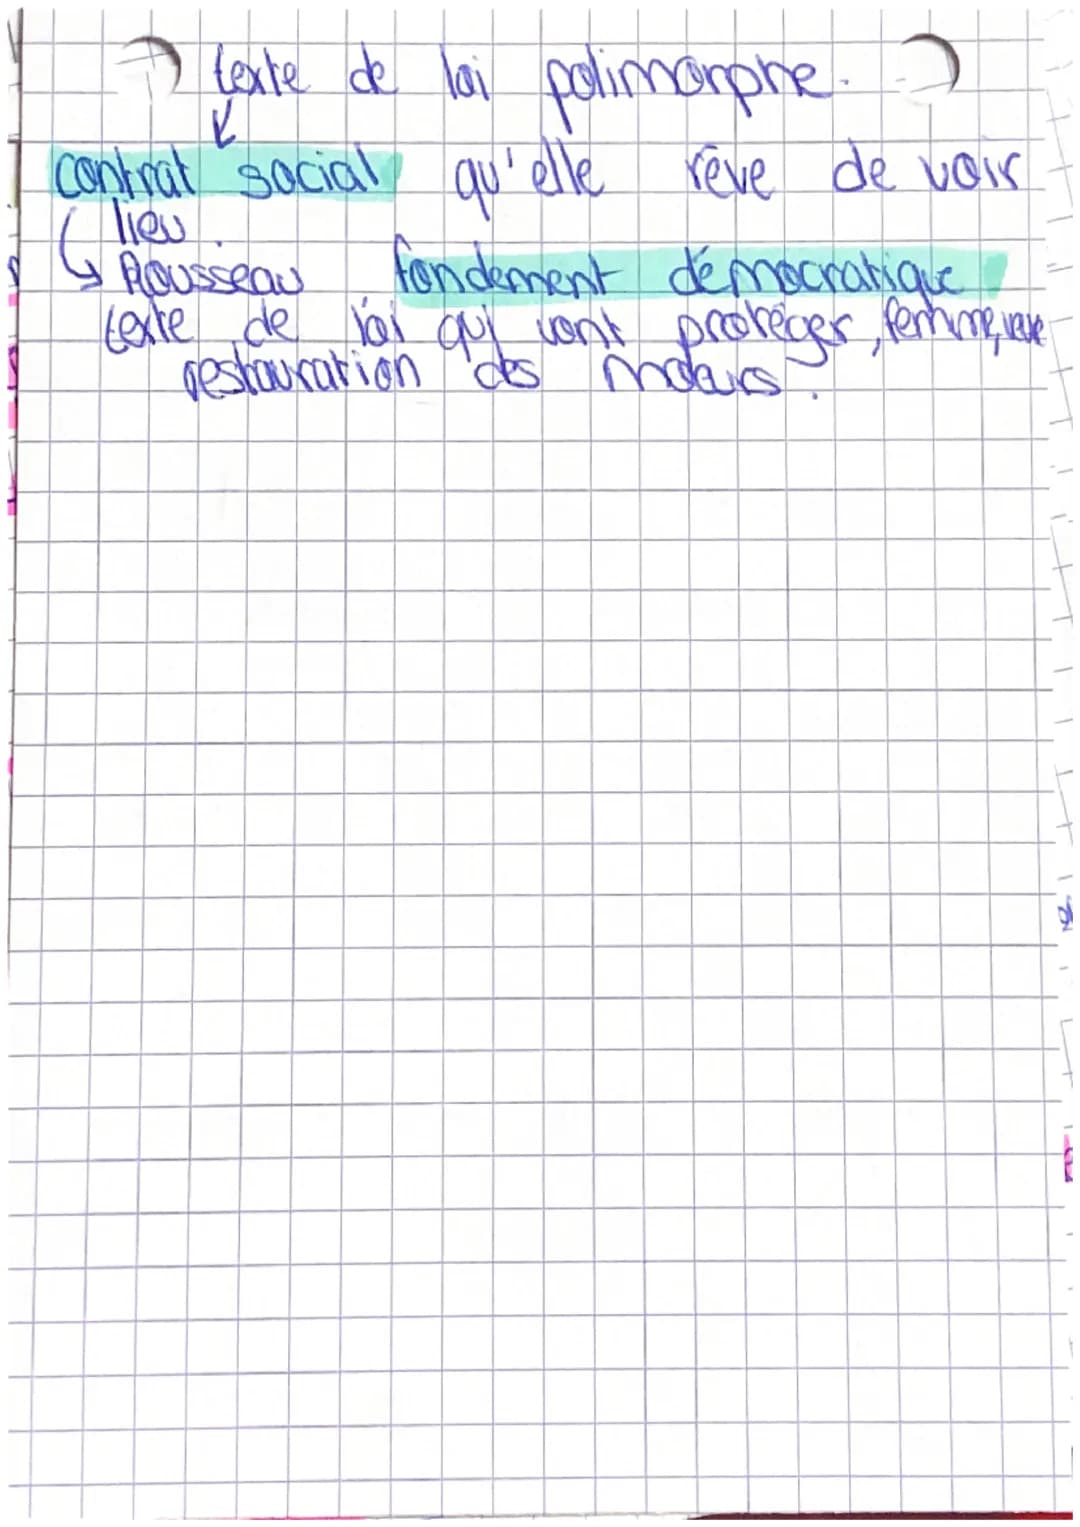 texte de loi polimorphe.
contrat social qu'elle rêve de voir
lieu.
Rousseau fondement démocratique
texte de loi qui vont protéger, femme,
restauration des moeurs.